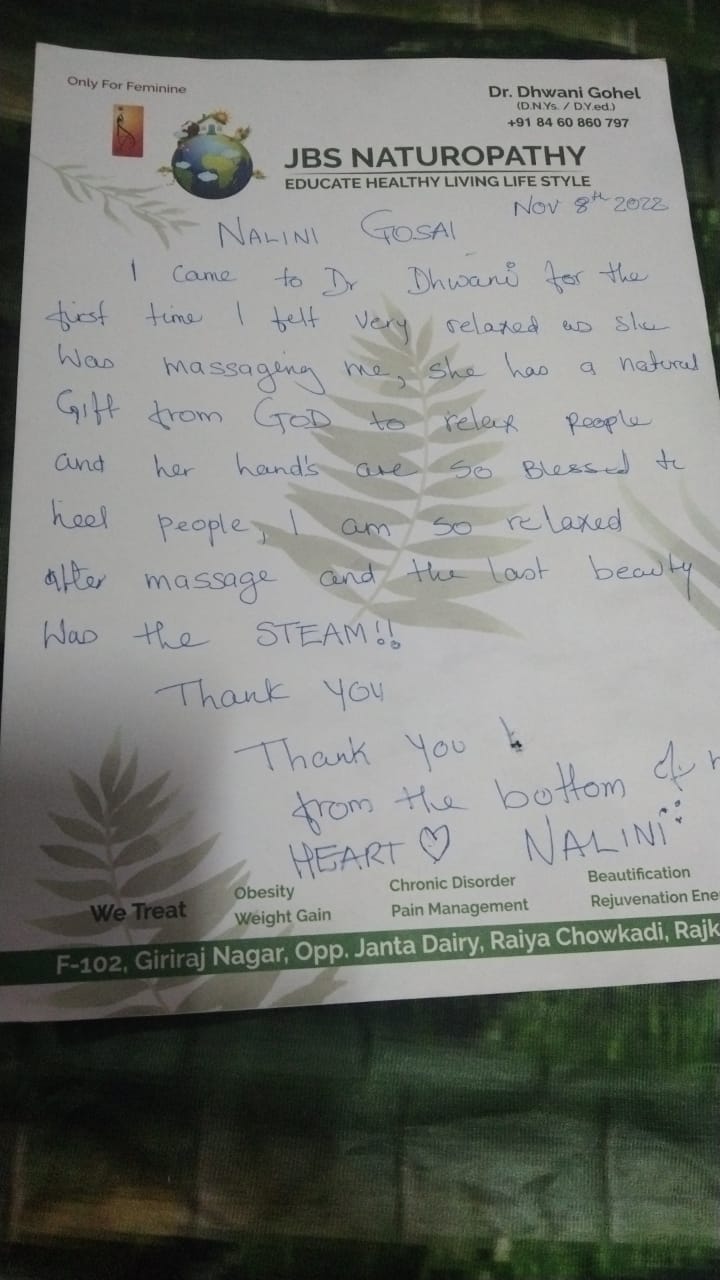 Only For Feminine
Dr. Dhwani Gohel
(D.N.Ys. / D.Y.ed.)
+91 84 60 860 797
JBS NATUROPATHY
EDUCATE HEALTHY LIVING LIFE STYLE
Nov 8th 2022
NALINI GOSAI
I came to Dr Dhwani for the
first time I felt very relaxed as she
was massaging me, she has a natural
Gift from GOD to relax people
and her hand's are so Blessed to
heel people, I am so relaxed
after massage and the last beauty
was the STEAM!!
Thank you
Thank you
from the bottom of
HEART ♡ NALINI
We Treat
Obesity
Weight Gain
Chronic Disorder
Pain Management
Beautification
Rejuvenation Ene
F-102, Giriraj Nagar, Opp. Janta Dairy, Raiya Chowkadi, Rajk